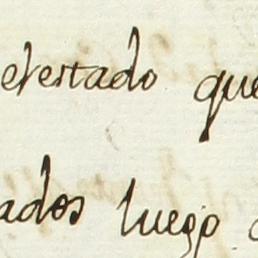 evertado que
ados luego